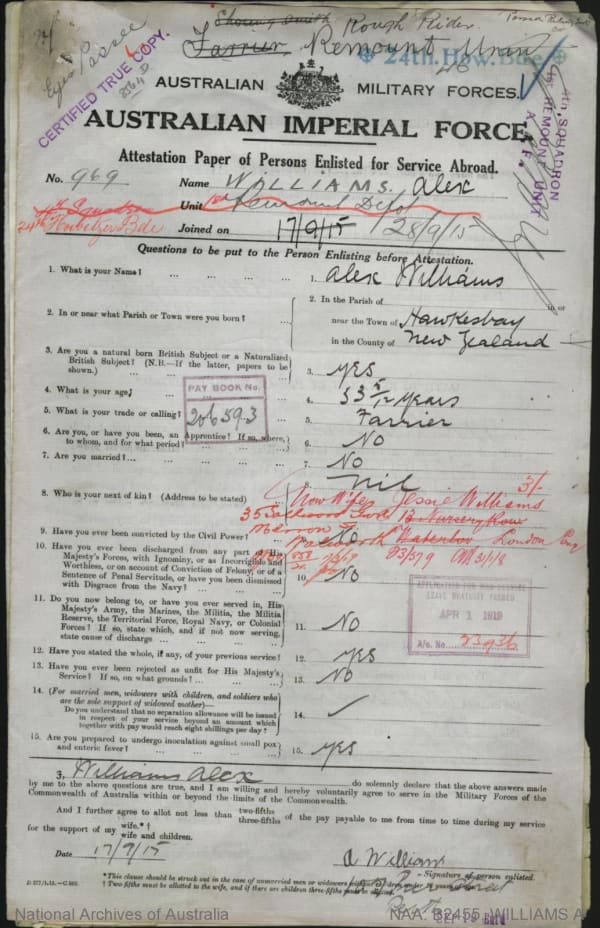 Shoeing Smith Rough Rider
Farrier Remount Unit
24th. How. Bde
Eyes Passed
CERTIFIED TRUE COPY.
AUSTRALIAN MILITARY FORCES.
AUSTRALIAN IMPERIAL FORCE.
4th SQUADRON
1st REMOUNT UNIT
A. I. F.
Attestation Paper of Persons Enlisted for Service Abroad.
No. 969 Name WILLIAMS. Alex
4th Squadron Unit 1st Remount Depot
24th Howitzer Bde
Joined on 17/9/15 28/9/15
Questions to be put to the Person Enlisting before Attestation.
1. What is your Name? ... ... ... ... 1. Alex Williams
2. In or near what Parish or Town were you born? ... 2. In the Parish of in or
near the Town of Hawkesbay
in the County of New Zealand
3. Are you a natural born British Subject or a Naturalized
British Subject? (N.B.—If the latter, papers to be
shown.) ... ... 3. Yes
4. What is your age? 4. 33 5/12 years
PAY BOOK No.
20659.3
5. What is your trade or calling? 5. Farrier
6. Are you, or have you been, an Apprentice? If so, where,
to whom, and for what period? 6. No
7. Are you married? ... 7. No
8. Who is your next of kin? (Address to be stated) ... 8. Nil 3/-
Now Wife Jessie Williams
35 13 Nursery Row
Walworth Waterloo London Eng
9. Have you ever been convicted by the Civil Power? 9. No
10. Have you ever been discharged from any part of His
Majesty's Forces, with Ignominy, or as Incorrigible and
Worthless, or on account of Conviction of Felony, or of a
Sentence of Penal Servitude, or have you been dismissed
with Disgrace from the Navy? ... ... 10. No
11. Do you now belong to, or have you ever served in, His
Majesty's Army, the Marines, the Militia, the Militia
Reserve, the Territorial Force, Royal Navy, or Colonial
Forces? If so, state which, and if not now serving,
state cause of discharge ... ... 11. No
APPLICATION FOR WAR SERVICE
LEAVE GRATUITY PASSED
APR 1 1919
A/c No. 23936
12. Have you stated the whole, if any, of your previous service? 12. Yes
13. Have you ever been rejected as unfit for His Majesty's
Service? If so, on what grounds? ... ... 13. No
14. (For married men, widowers with children, and soldiers who
are the sole support of widowed mother)—
Do you understand that no separation allowance will be issued
in respect of your service beyond an amount which
together with pay would reach eight shillings per day? 14. ✓
15. Are you prepared to undergo inoculation against small pox
and enteric fever? ... ... ... 15. Yes
I, Williams Alex do solemnly declare that the above answers made
by me to the above questions are true, and I am willing and hereby voluntarily agree to serve in the Military Forces of the
Commonwealth of Australia within or beyond the limits of the Commonwealth.
And I further agree to allot not less than two-fifths
three-fifths of the pay payable to me from time to time during my service
for the support of my wife.*†
wife and children.
Date 17/9/15
A Williams
Signature of person enlisted.
*This clause should be struck out in the case of unmarried men or widowers
† Two fifths must be allotted to the wife, and if there are children three-fifths must be allotted.
National Archives of Australia
NAA: B2455, WILLIAMS A